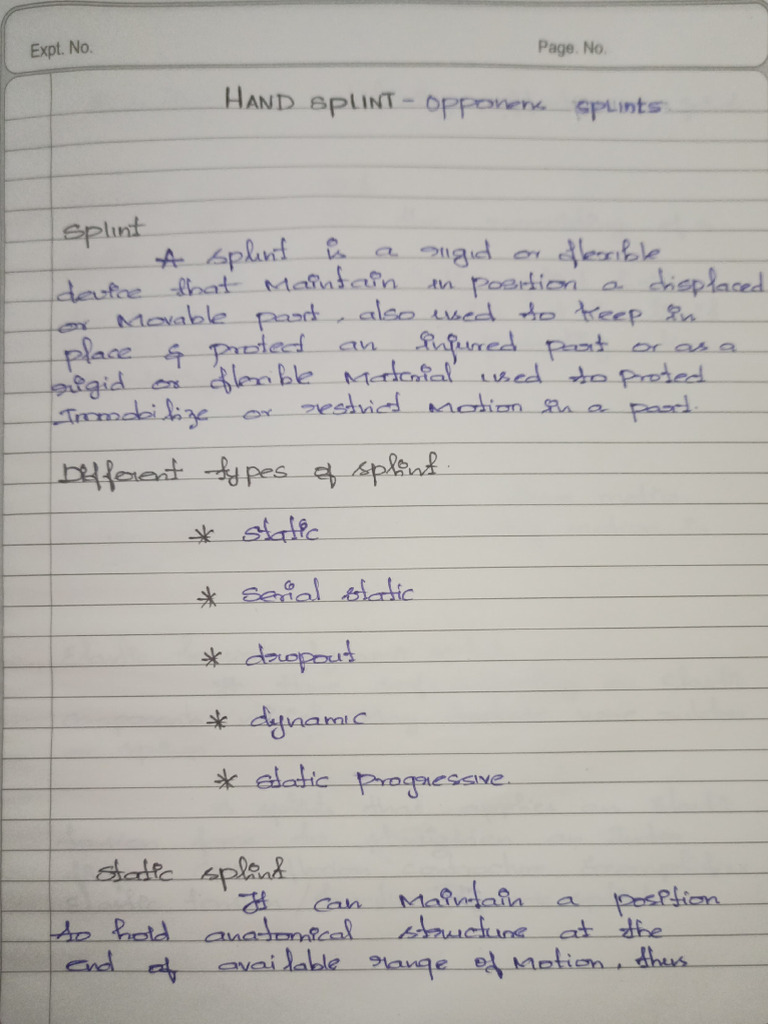 Expt. No.
Page. No.
HAND SPLINT - opponens splints
Splint
A splint is a rigid or flexible
device that Maintain in position a displaced
or Movable part, also used to keep in
place & protect an injured part or as a
rigid or flexible Material used to protect
Immobilize or restrict Motion in a part.
Different types of splint.
* static
* serial static
* dropout
* dynamic
* static progressive.
static splint
It can Maintain a position
to hold anatomical structure at the
end of available range of Motion, thus